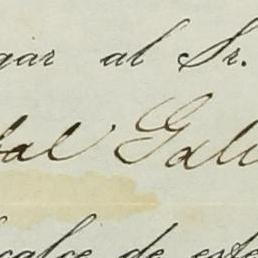 gar al Sr.
bal Gali
calce de este